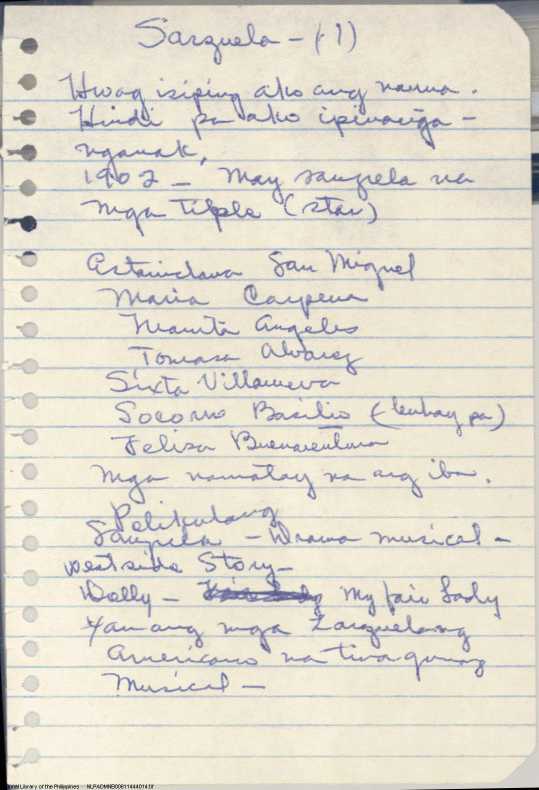 Sarzuela - (1)
Hwag isiping ako ang nauna.
Hindi pa ako ipinanga-
nganak,
1902 - May sarzuela na
mga Tiple (star)
Estanislawa San Miguel
Maria Carpena
Juanita Angeles
Tomasa Alvarez
Sixta Villanueva
Socorro Basilio (buhay pa)
Felisa Buenaventura
mga namatay na ang iba.
Pelikulang
Sarzuela - Drama musical -
west side Story -
Dolly - My fair Lady
Yan ang mga Zarzuelang
Americano na tinagurang
Musical -
Library of the Philippines